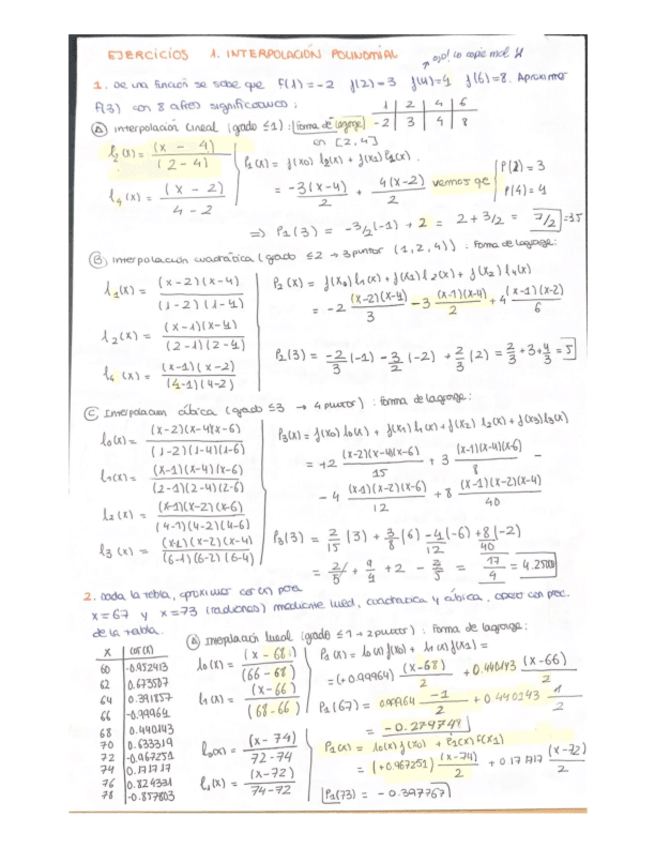 EJERCICIOS 1. INTERPOLACIÓN POLINOMIAL
ojo! lo copié mal
1. De una función se sabe que f(1)=-2 f(2)=3 f(4)=4 f(6)=8. Aproximar
f(3) con 8 cifras significativas:
1 | 2 | 4 | 6
-2 | 3 | 4 | 8
(A) interpolación lineal (grado ≤1): forma de Lagrange
en [2,4]
l₂(x) = (x - 4) / (2-4)
l₄(x) = (x - 2) / 4-2
P₁(x) = f(x₀) l₀(x) + f(x₁) l₁(x).
= -3(x-4)/2 + 4(x-2)/2 vemos que P(2)=3
P(4)=4
⇒ P₁(3) = -3/2(-1) + 2 = 2 + 3/2 = 7/2 = 3.5
(B) interpolación cuadrática (grado ≤2 → 3 puntos (1,2,4)): forma de Lagrange:
l₁(x) = (x-2)(x-4) / (1-2)(1-4)
l₂(x) = (x-1)(x-4) / (2-1)(2-4)
l₄(x) = (x-1)(x-2) / (4-1)(4-2)
P₂(x) = f(x₀) l₁(x) + f(x₁) l₂(x) + f(x₂) l₄(x)
= -2 (x-2)(x-4)/3 - 3 (x-1)(x-4)/2 + 4 (x-1)(x-2)/6
P₂(3) = -2/3 (-1) - 3/2 (-2) + 2/3 (2) = 2/3 + 3 + 4/3 = 5
(C) Interpolación cúbica (grado ≤3 → 4 puntos): forma de Lagrange:
l₀(x) = (x-2)(x-4)(x-6) / (1-2)(1-4)(1-6)
l₁(x) = (x-1)(x-4)(x-6) / (2-1)(2-4)(2-6)
l₂(x) = (x-1)(x-2)(x-6) / (4-1)(4-2)(4-6)
l₃(x) = (x-1)(x-2)(x-4) / (6-1)(6-2)(6-4)
P₃(x) = f(x₀) l₀(x) + f(x₁) l₁(x) + f(x₂) l₂(x) + f(x₃) l₃(x)
= +2 (x-2)(x-4)(x-6)/15 + 3 (x-1)(x-4)(x-6)/8 -
- 4 (x-1)(x-2)(x-6)/12 + 8 (x-1)(x-2)(x-4)/40
P₃(3) = 2/15 (3) + 3/8 (6) - 4/12 (-6) + 8/40 (-2)
= 2/5 + 9/4 + 2 - 2/5 = 17/4 = 4.2500
2. Dada la tabla, aproximar cos(x) para
x=67 y x=73 (radianes) mediante lineal, cuadrática y cúbica, con prec.
de la tabla.
x | cos(x)
60 | -0.952413
62 | 0.673507
64 | 0.391857
66 | -0.99964
68 | 0.440143
70 | 0.633319
72 | -0.967251
74 | 0.171717
76 | 0.824331
78 | -0.857803
(A) Interpolación lineal (grado ≤1 → 2 puntos): forma de Lagrange:
l₀(x) = (x - 68) / (66 - 68)
l₁(x) = (x-66) / (68-66)
P₁(x) = l₀(x) f(x₀) + l₁(x) f(x₁) =
= (+0.99964) (x-68)/2 + 0.440143 (x-66)/2
P₁(67) = 0.99964 -1/2 + 0.440143 1/2
= -0.279749
l₀(x) = (x-74) / 72-74
l₁(x) = (x-72) / 74-72
P₁(x) = l₀(x) f(x₀) + l₁(x) f(x₁)
= (+0.967251) (x-74)/2 + 0.171717 (x-72)/2
P₁(73) = -0.397767